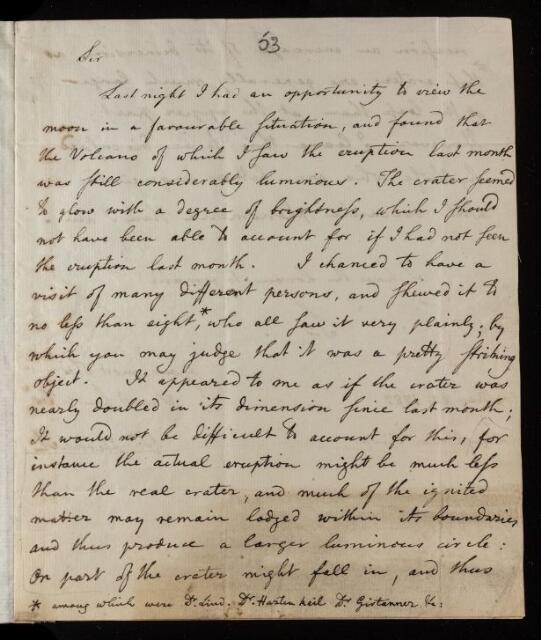 53
Sir
Last night I had an opportunity to view the
moon in a favourable situation, and found that
the Volcano of which I saw the eruption last month
was still considerably luminous. The crater seemed
to glow with a degree of brightness, which I should
not have been able to account for if I had not seen
the eruption last month. I chanced to have a
visit of many different persons, and shewed it to
no less than eight,* who all saw it very plainly; by
which you may judge that it was a pretty striking
object. It appeared to me as if the crater was
nearly doubled in its dimension since last month;
It would not be difficult to account for this, for
instance the actual eruption might be much less
than the real crater, and much of the ignited
matter may remain lodged within its boundaries
and thus produce a larger luminous circle:
Or part of the crater might fall in, and thus
* among which were Dr. Lind. Dr. Hartenkeil Dr. Girtanner &c: